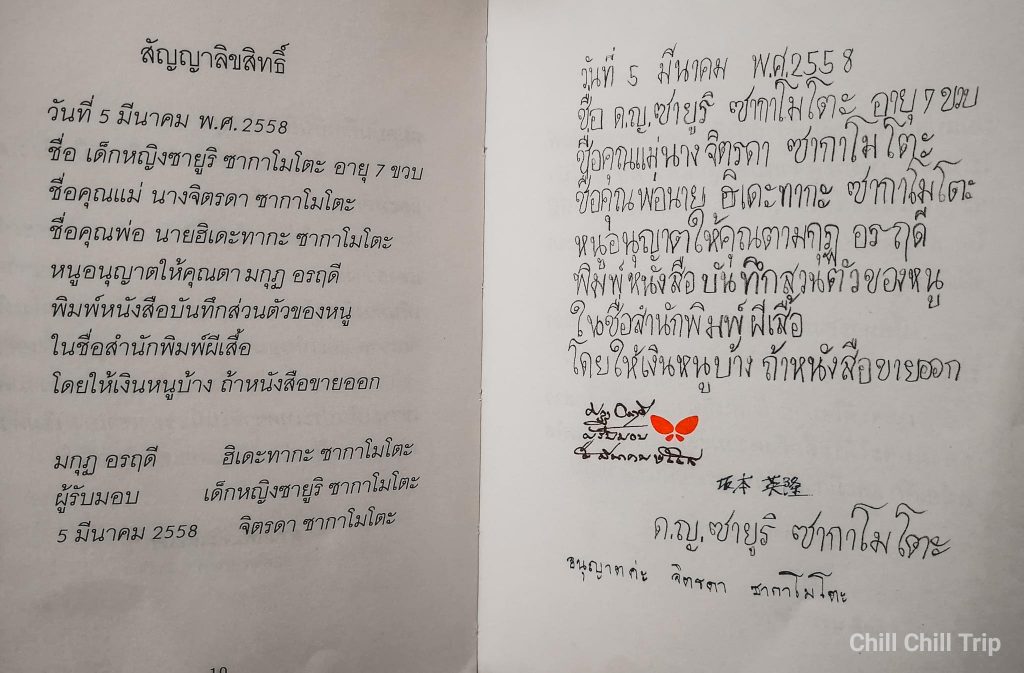 สัญญาลิขสิทธิ์
วันที่ 5 มีนาคม พ.ศ. 2558
ชื่อ เด็กหญิงซายูริ ซากาโมโตะ อายุ 7 ขวบ
ชื่อคุณแม่ นางจิตรดา ซากาโมโตะ
ชื่อคุณพ่อ นายฮิเดะทากะ ซากาโมโตะ
หนูอนุญาตให้คุณตา มกุฏ อรฤดี
พิมพ์หนังสือบันทึกส่วนตัวของหนู
ในชื่อสำนักพิมพ์ผีเสื้อ
โดยให้เงินหนูบ้าง ถ้าหนังสือขายออก
มกุฏ อรฤดี ฮิเดะทากะ ซากาโมโตะ
ผู้รับมอบ เด็กหญิงซายูริ ซากาโมโตะ
5 มีนาคม 2558 จิตรดา ซากาโมโตะ
วันที่ 5 มีนาคม พ.ศ.2558
ชื่อ ด.ญ.ซายูริ ซากาโมโตะ อายุ 7 ขวบ
ชื่อคุณแม่นางจิตรดา ซากาโมโตะ
ชื่อคุณพ่อนาย ฮิเดะทากะ ซากาโมโตะ
หนูอนุญาตให้คุณตามกุฏ อรฤดี
พิมพ์หนังสือ บันทึกส่วนตัวของหนู
ในชื่อสำนักพิมพ์ ผีเสื้อ
โดยให้เงินหนูบ้าง ถ้าหนังสือขายออก
ผู้รับมอบ
坂本 英隆
ด.ญ.ซายูริ ซากาโมโตะ
อนุญาตค่ะ จิตรดา ซากาโมโตะ
Chill Chill Trip